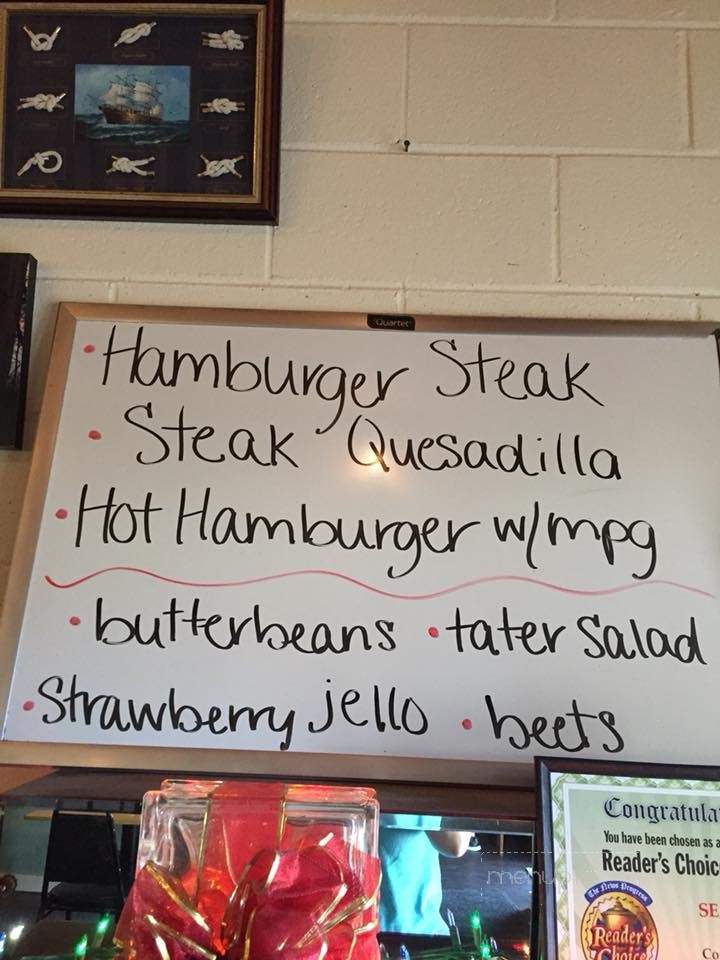 Quartet
• Hamburger Steak
• Steak Quesadilla
• Hot Hamburger w/mpg
• butterbeans • tater salad
• Strawberry jello • beets
Congratula
You have been chosen as a
Reader's Choic
The News Progress
SE
Reader's
Choice
Co
menu